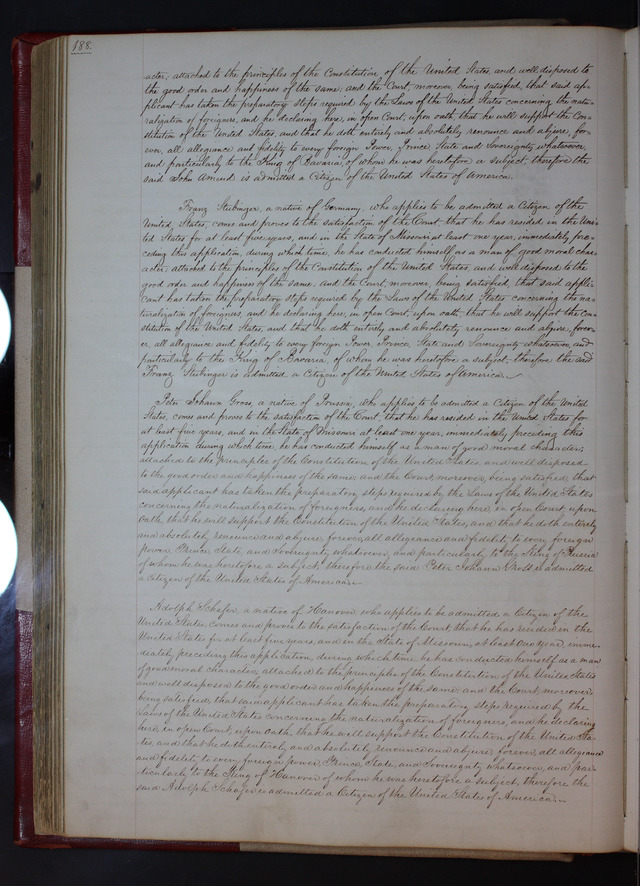 188.
acter, attached to the principles of the Constitution of the United States, and well disposed to
the good order and happiness of the same, and the Court, moreover being satisfied, that said ap-
plicant has taken the preparatory steps required by the Laws of the United States concerning the natu-
ralization of foreigners, and he declaring here, in open Court, upon oath that he will support the Con-
stitution of the United States, and that he doth entirely and absolutely renounce and abjure, for-
ever, all allegiance and fidelity to every foreign Power, Prince State and Sovereignty whatsoever,
and particularly to the King of Bavaria, of whom he was heretofore a subject, therefore the
said John Amend is admitted a Citizen of the United States of America.
Franz Steibinger, a native of Germany, who applies to be admitted a Citizen of the
United States, comes and proves to the satisfaction of the Court, that he has resided in the Uni-
ted States for at least five years, and in the State of Missouri at least one year, immediately pre-
ceding this application, during which time, he has conducted himself as a man of good moral char-
acter, attached to the principles of the Constitution of the United States, and well disposed to the
good order and happiness of the same, and the Court, moreover, being satisfied, that said appli-
cant has taken the preparatory steps required by the Laws of the United States concerning the na-
turalization of foreigners, and he declaring here, in open Court, upon oath, that he will support the Con-
stitution of the United States, and that he doth entirely and absolutely renounce and abjure, forev-
er, all allegiance and fidelity to every foreign Power, Prince, State and Sovereignty whatsoever, and
particularly to the King of Bavaria, of whom he was heretofore a subject, therefore the said
Franz Steibinger is admitted a Citizen of the United States of America.
Peter Johann Gross, a native of Prussia, who applies to be admitted a Citizen of the United
States, comes and proves to the satisfaction of the Court, that he has resided in the United States for
at least five years, and in the State of Missouri at least one year, immediately preceding this
application during which time, he has conducted himself as a man of good moral character,
attached to the principles of the Constitution of the United States and well disposed
to the good order and happiness of the same, and the Court, moreover, being satisfied, that
said applicant has taken the preparatory steps required by the Laws of the United States
concerning the naturalization of foreigners, and he declaring here, in open Court, upon
Oath, that he will support the Constitution of the United States, and that he doth entirely
and absolutely renounce and abjure forever, all allegiance and fidelity to every foreign
power, Prince, State, and Sovereignty whatsoever, and particularly to the King of Prussia
of whom he was heretofore a subject, therefore the said Peter Johann Gross is admitted
a Citizen of the United States of America.
Adolph Schafer, a native of Hanover, who applies to be admitted a Citizen of the
United States, comes and proves to the satisfaction of the Court, that he has resided in the
United States for at least five years, and in the State of Missouri, at least one year, imme-
diately preceding this application, during which time he has conducted himself as a man
of good moral character, attached to the principles of the Constitution of the United States
and well disposed to the good order and happiness of the same, and the Court, moreover,
being satisfied, that said applicant has taken the preparatory steps required by the
Laws of the United States concerning the naturalization of foreigners, and he declaring
here, in open Court, upon oath, that he will support the Constitution of the United Sta-
tes, and that he doth entirely, and absolutely renounce and abjure forever, all allegiance
and fidelity to every foreign power, Prince, State, and Sovereignty whatsoever, and par-
ticularly to the King of Hanover of whom he was heretofore a subject, therefore the
said Adolph Schafer is admitted a Citizen of the United States of America.